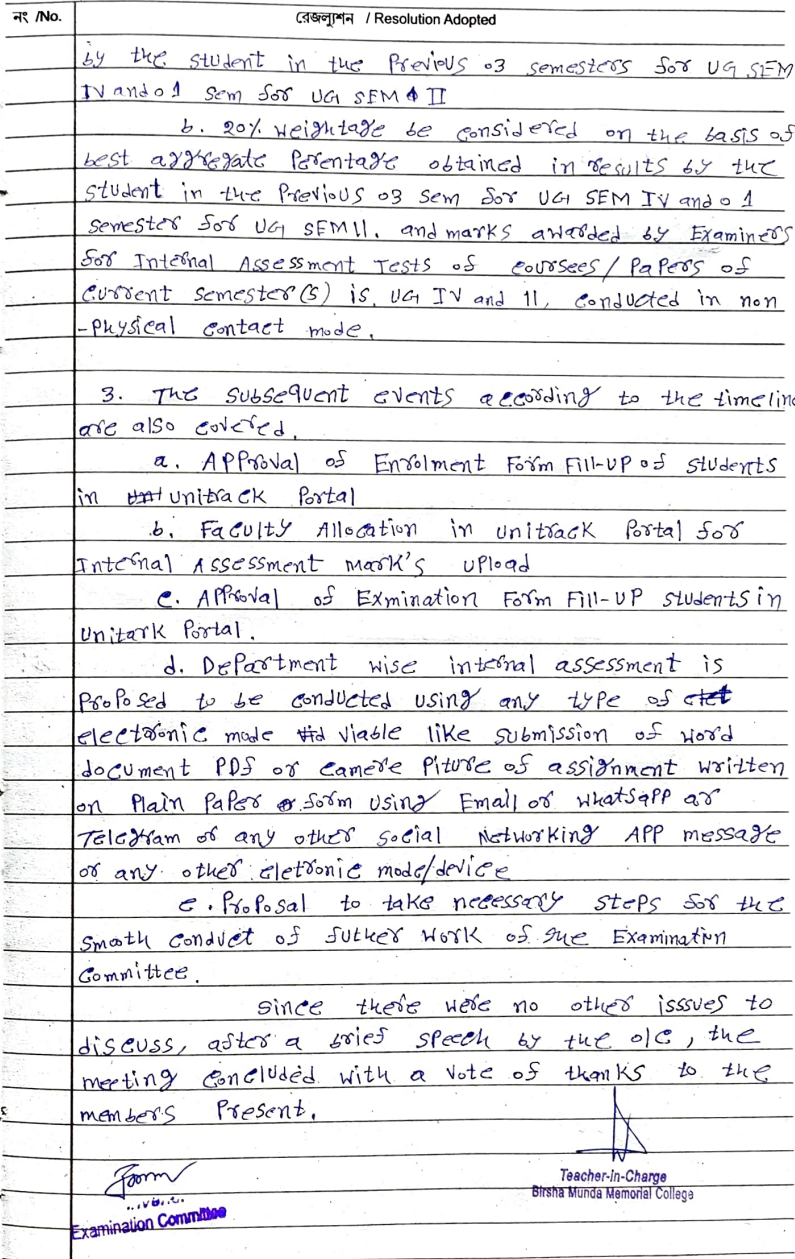 নং /No.
রেজল্যুশন / Resolution Adopted
by the student in the Previous 03 semesters for UG SEM
IV and 01 Sem for UG SEM II
b. 20% weightage be considered on the basis of
best aggregate Perentage obtained in results by the
student in the Previous 03 Sem for UG SEM IV and 01
semester for UG SEM II. and marks awarded by Examiners
for Internal Assessment Tests of coursees/Papers of
Current semester(s) is, UG IV and II, conducted in non
-Physical contact mode.
3. The subsequent events according to the timeline
are also covered.
a. Approval of Enrolment Form Fill-UP of students
in unitrack Portal
b. Faculty Allocation in unitrack Portal for
Internal Assessment mark's upload
c. Approval of Exmination Form Fill-UP students in
Unitark Portal.
d. Department wise internal assessment is
Proposed to be conducted using any type of
electronic mode viable like submission of word
document PDF or camere Piture of assignment written
on Plain Paper form using Email or whatsapp ar
Telegram or any other social Networking APP message
or any other eletronic mode/device
e. Proposal to take necessary steps for the
smooth conduct of futher work of the Examination
Committee.
since there were no other isssues to
discuss, after a brief speech by the o/c, the
meeting concluded with a vote of thanks to the
members Present.
Teacher-in-Charge
Birsha Munda Memorial College
Examination Committee